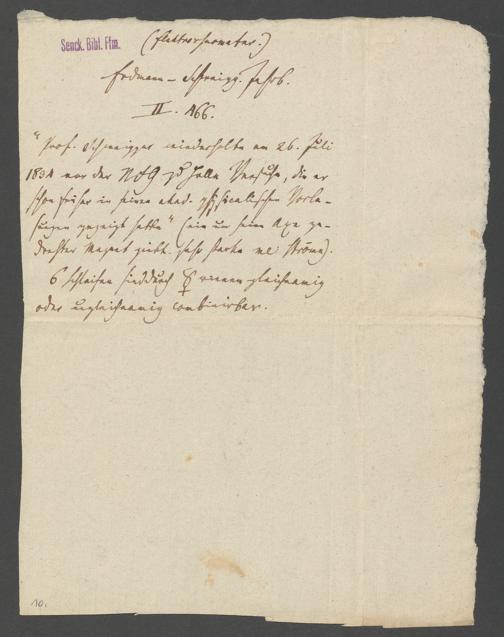 Senck. Bibl. Ffm.
Erdmann - Schweigg. Jahrb.
II. 466.
"Prof. Schweigger wiederholte am 26. Juli
1834 vor der NfG zu Halle Versuche, die er
schon früher in seinen akad. physicalischen Vorle-
sungen gezeigt hatte" (ein um seine Axe ge-
drehter Magnet giebt sehr starke el. Ströme).
6 Schleifen sind durch gleichnamig
oder ungleichnamig combinirbar.
10.